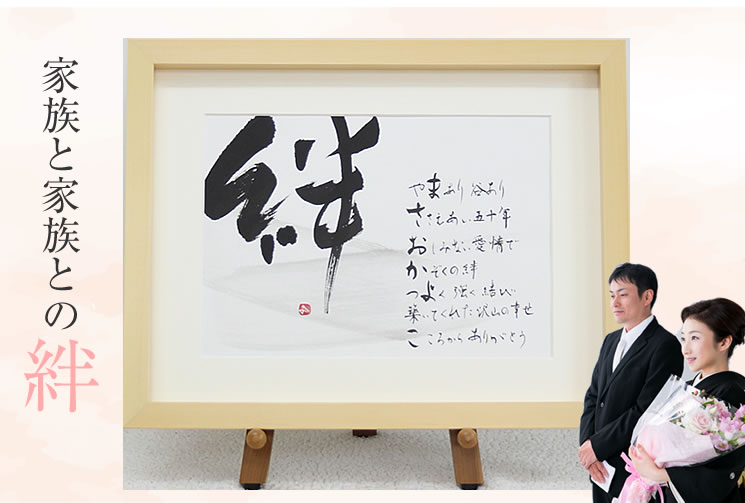 家族と家族との
絆
絆
やまあり谷あり
ささえあい五十年
おしみない愛情で
かぞくの絆
つよく強く結び
築いてくれた沢山の幸せ
こころからありがとう